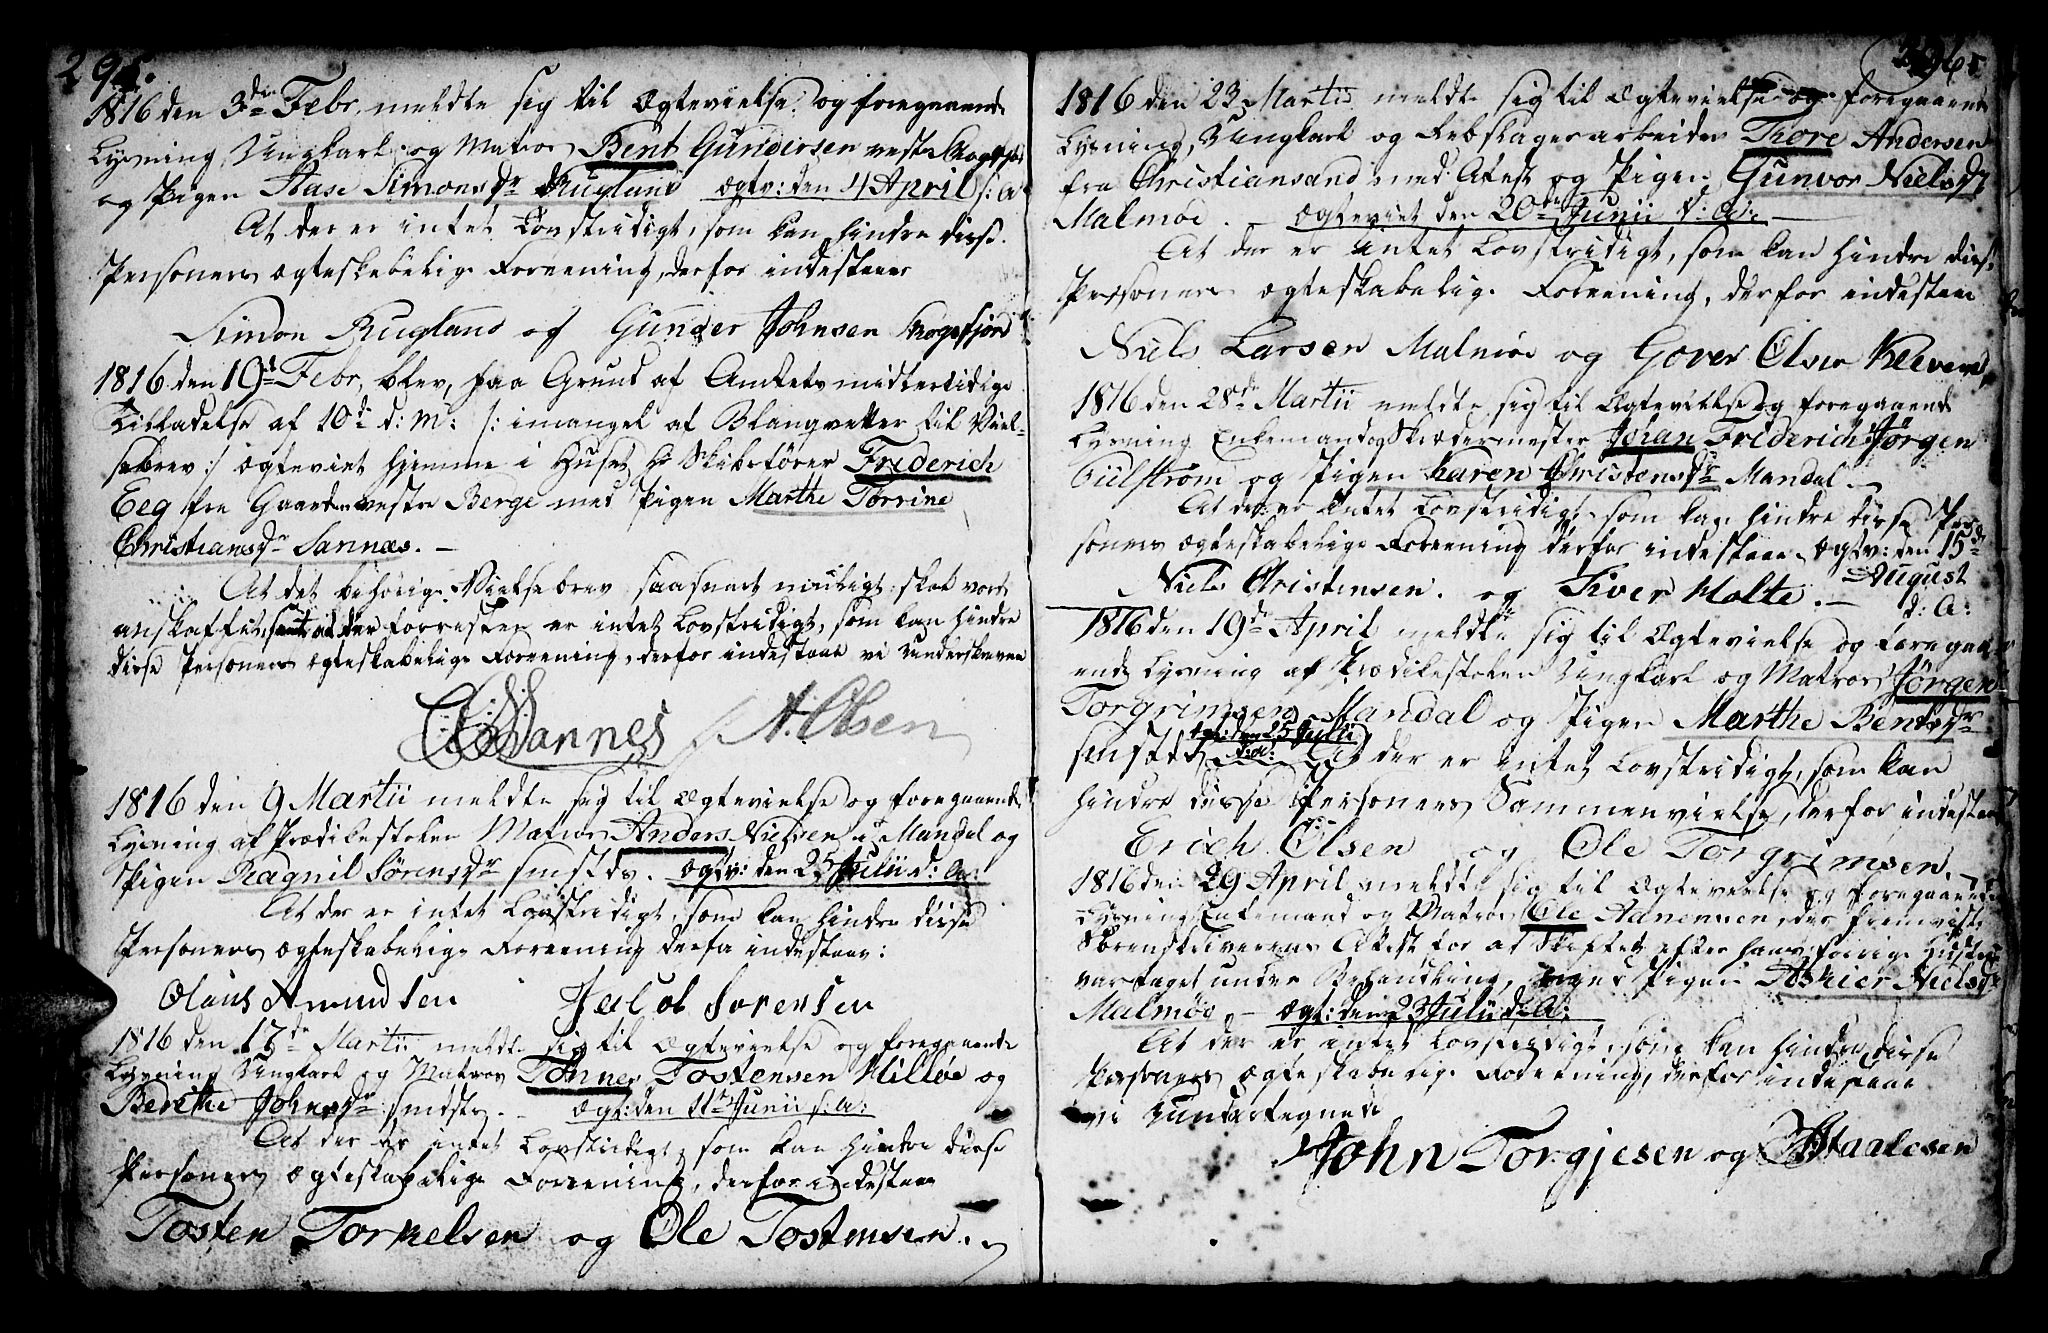 295.
1816 den 3die Febr. meldte sig til Ægtevielse og foregaaende
Lysning, Ungkarl og Matros Bent Gundersen vestre
og Pigen Aase Simonsdr Rugland Ægtv: den 4 April s: A:
At der er intet Lovstridigt, som kan hindre disse
Personers ægteskabelige Foreening, derfor indestaaer
Simon Rugland og Gunder Johnsen Skogsfjord
1816 den 19de Febr. blev, paa Grund af Amtets midlertidige
Tilladelse af 10de d: M: /: i mangel af Blanqvetter til Viel-
sebrev :/ ægteviet hjemme i Huset Hr Skibsfører Friderich
Eeg fra Gaarden vestre Berge med Pigen Marthe Torrine
Christiansdr Sannæs. —
At det behørige Vielsebrev saasnart mueligt skal vorde
anskaffet, samt at der forresten er intet Lovstridigt, som kan hindre
disse Personers ægteskabelige Foreening, derfor indestaae vi Underskrevne
Sannes A. Olsen
1816 den 9 Martii meldte sig til Ægtevielse og foregaaende
Lysning af Prædikestolen Matros Anders Nielsen i Mandal og
Pigen Ragnil Sørensdr smsteds. Ægtv: den 25 Julii d: A:
At der er intet Lovstridigt, som kan hindre disse
Personers ægteskabelige Foreening derfor indestaae:
Olaus Amundsen Jacob Sørensen
1816 den 17de Martii meldte sig til Ægtevielse og foregaaende
Lysning Ungkarl og Matros Tønnes Tostensen Hilløe og
Berethe Johnsdr smdsts. — Ægt: den 11te Junii s: A:
At der er intet Lovstridigt, som kan hindre disse
Personers ægteskabelige Foreening, derfor indestaae
Tosten Torkelsen og Ole Tostensen.
296.
1816 den 23 Martii meldte sig til Ægtevielse og foregaaende
Lysning, Ungkarl og Rebslagerarbeider Thore Andersen
fra Christiansand med Attest og Pigen Gunvor Nielsdr
Malmøe. — Ægteviet den 20de Junii d: A: —
At der er intet Lovstridigt, som kan hindre disse
Personers ægteskabelige Foreening, derfor indestaae
Niels Larsen Malmøe og Gover Olsen Kleven
1816 den 28de Martii meldte sig til Ægtevielse og foregaaende
Lysning Enkemand og Skrædermester Johan Friderich Jørgen
og Pigen Karen Christensdr Mandal. —
At der er intet Lovstridigt som kan hindre disse Per-
soners ægteskabelige Foreening derfor indestaae. Ægtv: den 15de
August
d: A:
Niels Christensen. og Siver Holte. —
1816 den 19de April meldte sig til Ægtevielse og foregaa-
ende Lysning af Prædikestolen Ungkarl og Matros Jørgen
Torgrimsen Mandal og Pigen Marthe Bentsdr
smstds Ægtv: den 25 Julii d: A: At der er intet Lovstridigt, som kan
hindre disse Personers Sammenvielse, derfor indestaae
Erich Olsen og Ole Torgrimsen. —
1816 den 29 April meldte sig til Ægtevielse og foregaaende
Lysning Enkemand og Matros Ole Adnensen, der fremviste
Sorenskriverens Attest for at Skiftet efter hans forrige Hustru
var taget under Behandling, med Pigen Askier Nielsdr
Malmøe — Ægt: den 23 Julii d: A:
At der er intet Lovstridigt, som kan hindre disse
Personers ægteskabelige Foreening, derfor indestaae
vi Undertegnede
John Torgjesen og Staalesen